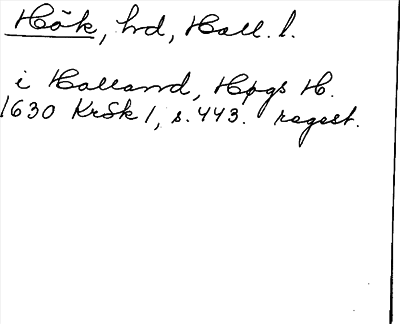 Hök, hd, Hall. l.
i Halland, Høgs H.
1630 KrSk 1, s. 443. regest.